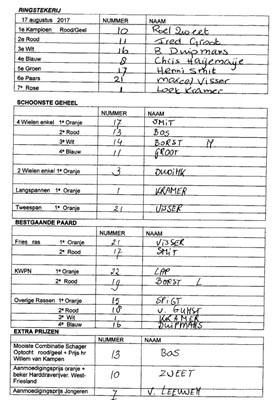 RINGSTEKERIJ
17 augustus 2017 NUMMER NAAM
1e Kampioen Rood/Geel 10 Roel Zweet
2e Rood 11 Fred Groot
3e Wit 16 B Duijpmans
4e Blauw 8 Chris Haijemaije
5e Groen 17 Henni Smit
6e Paars 21 Marcel Visser
7e Rose 1 Loek Kramer
SCHOONSTE GEHEEL NUMMER NAAM
4 Wielen enkel 1e Oranje 17 SMIT
2e Rood 13 BOS
3e Wit 14 BORST M
4e Blauw 11 GROOT
2 Wielen enkel 1e Oranje 3
Langspannen 1e Oranje 1 KRAMER
Tweespan 1e Oranje 21 VISSER
BESTGAANDE PAARD
NUMMER NAAM
Fries ras 1e Oranje 21 VISSER
2e Rood 17 SMIT
KWPN 1e Oranje 22 LAP
2e Rood 19 BORST L
Overige Rassen 1e Oranje 15 SPIGT
2e Rood 18 V. GUNST
3e Wit 1 KRAMER
4e Blauw 16 DUIPMANS
EXTRA PRIJZEN NUMMER NAAM
Mooiste Combinatie Schager
Optocht rood/geel + Prijs hr 13 BOS
Willem van Kampen
Aanmoedigingsprijs oranje +
beker Harddraverijver. West- 10 ZWEET
Friesland
Aanmoedigingsprijs Jongeren 7 V. LEEUWEN